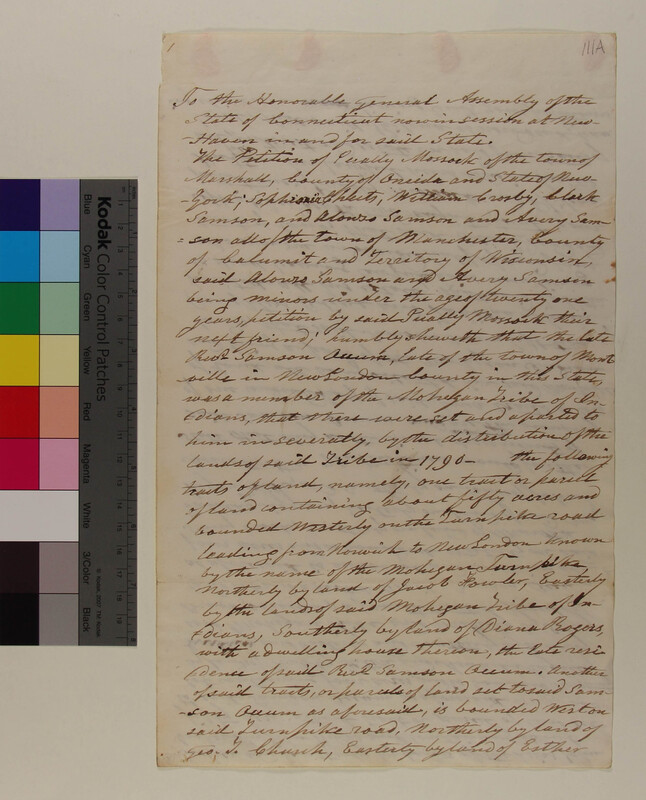 111A
To the Honorable General Assembly of the
State of Connecticut now in session at New-
-Haven in and for said State.
The Petition of Pually Mossock of the town of
Marshall, County of Oneida and State of New-
-York, Sophronia Sheets, William Crosby, Clark
Samson, and Alonzo Samson and Avery Sam-
-son all of the town of Manchester, County
of Calumit and Territory of Wisconsin,
said Alonzo Samson and Avery Samson
being minors under the age of twenty one
years, petition by said Pually Mossock their
next friend; humbly sheweth that the late
Revd. Samson Occum, late of the town of Mont-
-ville in New London County in this State,
was a member of the Mohegan Tribe of In-
-dians, that there were set and aparted to
him in severalty, by the distribution of the
lands of said Tribe in 1790— the following
tracts of land, namely, one tract or parcel
of land containing about fifty acres and
bounded Westerly on the Turnpike road
leading from Norwich to New London known
by the name of the Mohegan Turnpike,
Northerly by land of Jacob Fowler, Easterly
by the lands of said Mohegan Tribe of In-
-dians, Southerly by land of Diana Rogers,
with a dwelling house thereon, the late resi
dence of said Revd Samson Occum. Another
of said tracts, or parcels of land set to said Sam-
-son Occum as aforesaid, is bounded West on
said Turnpike road, Northerly by land of
Geo, G. Church, Easterly by land of Esther
Kodak
Color Control Patches
Blue
Cyan
Green
Yellow
Red
Magenta
White
3/Color
Black